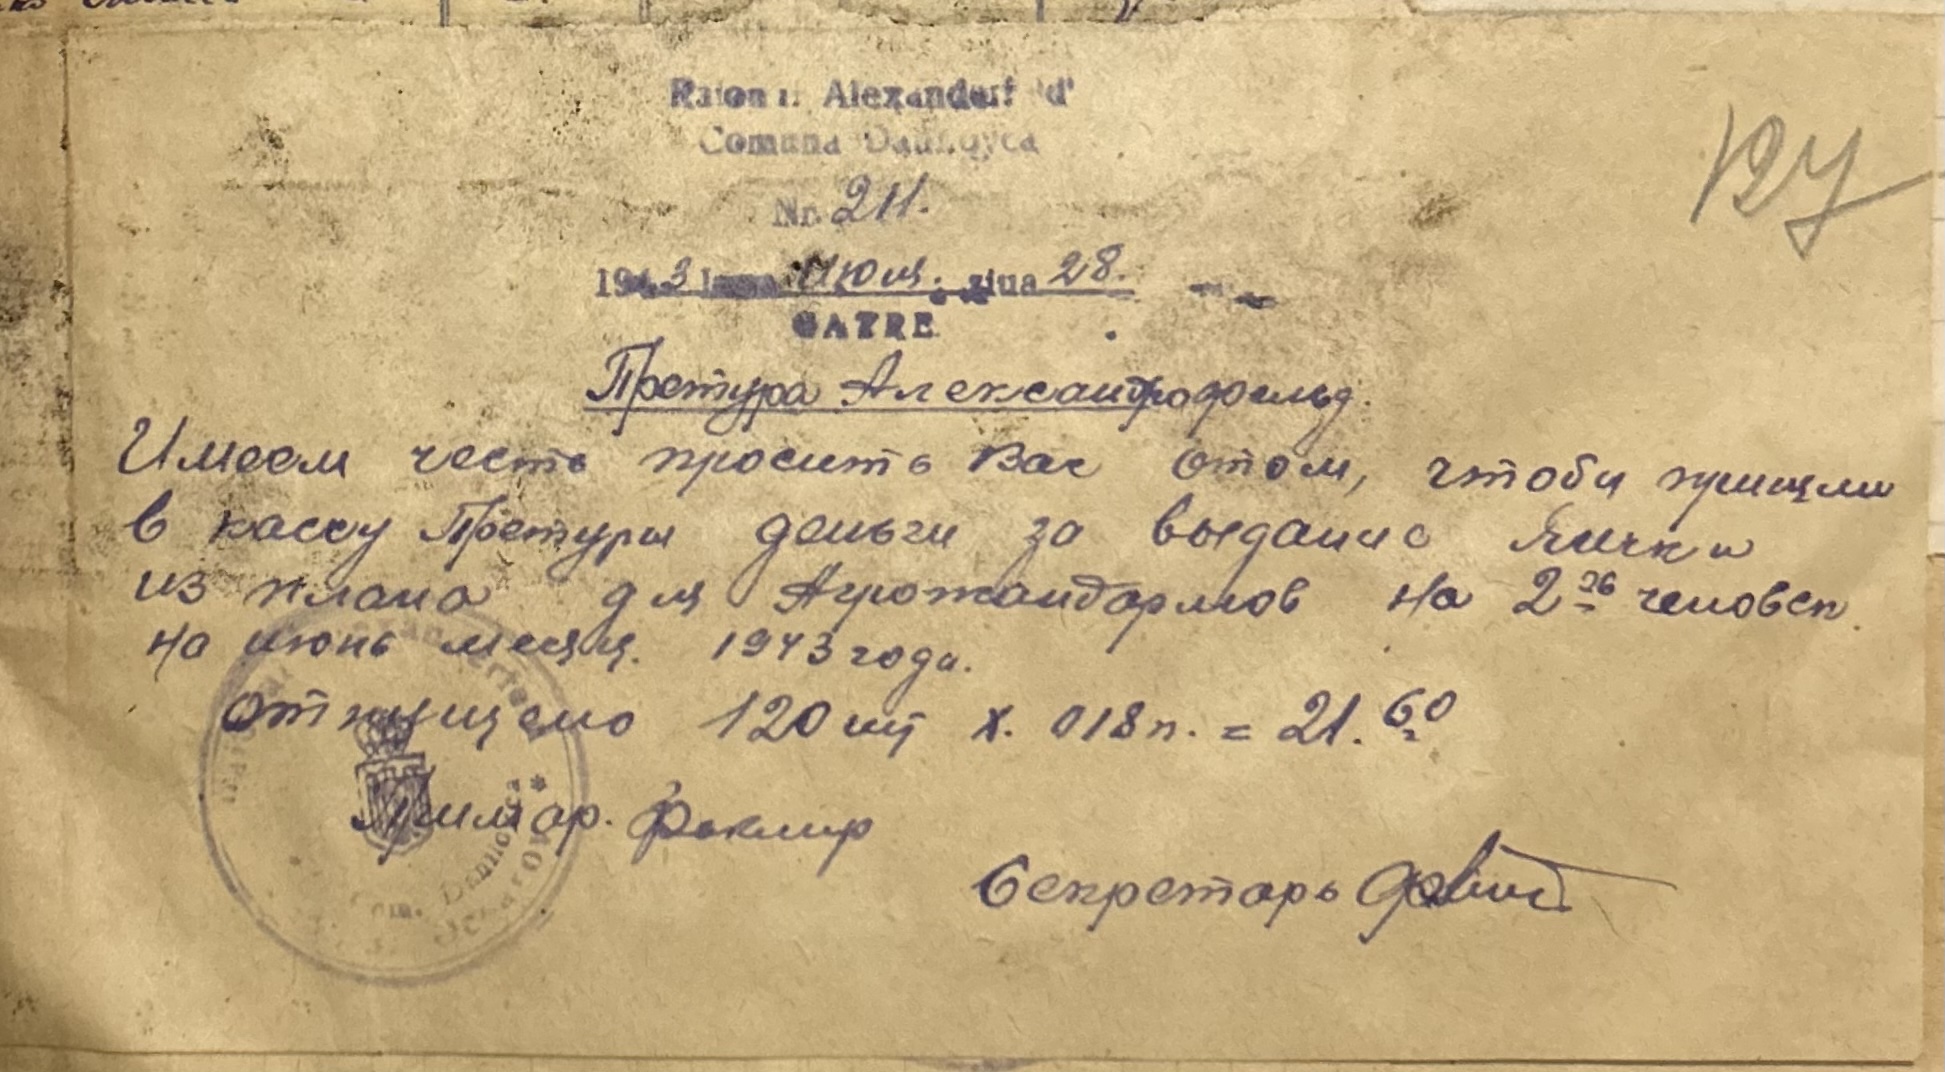 Raionul Alexanderfeld
Comuna
Nr. 211.
1943 luna Июня. ziua 28.
CATRE
Претура Александрофельд.
Имеем честь просить Вас отом, чтобы
в кассу Претуры деньги за выдание Яички
из плана для Агрожандармов на 2ух человек
на июнь месяц. 1943 года.
отпущено 120 шт х. 018п. = 21.60
Примар.
Секретарь
Com.